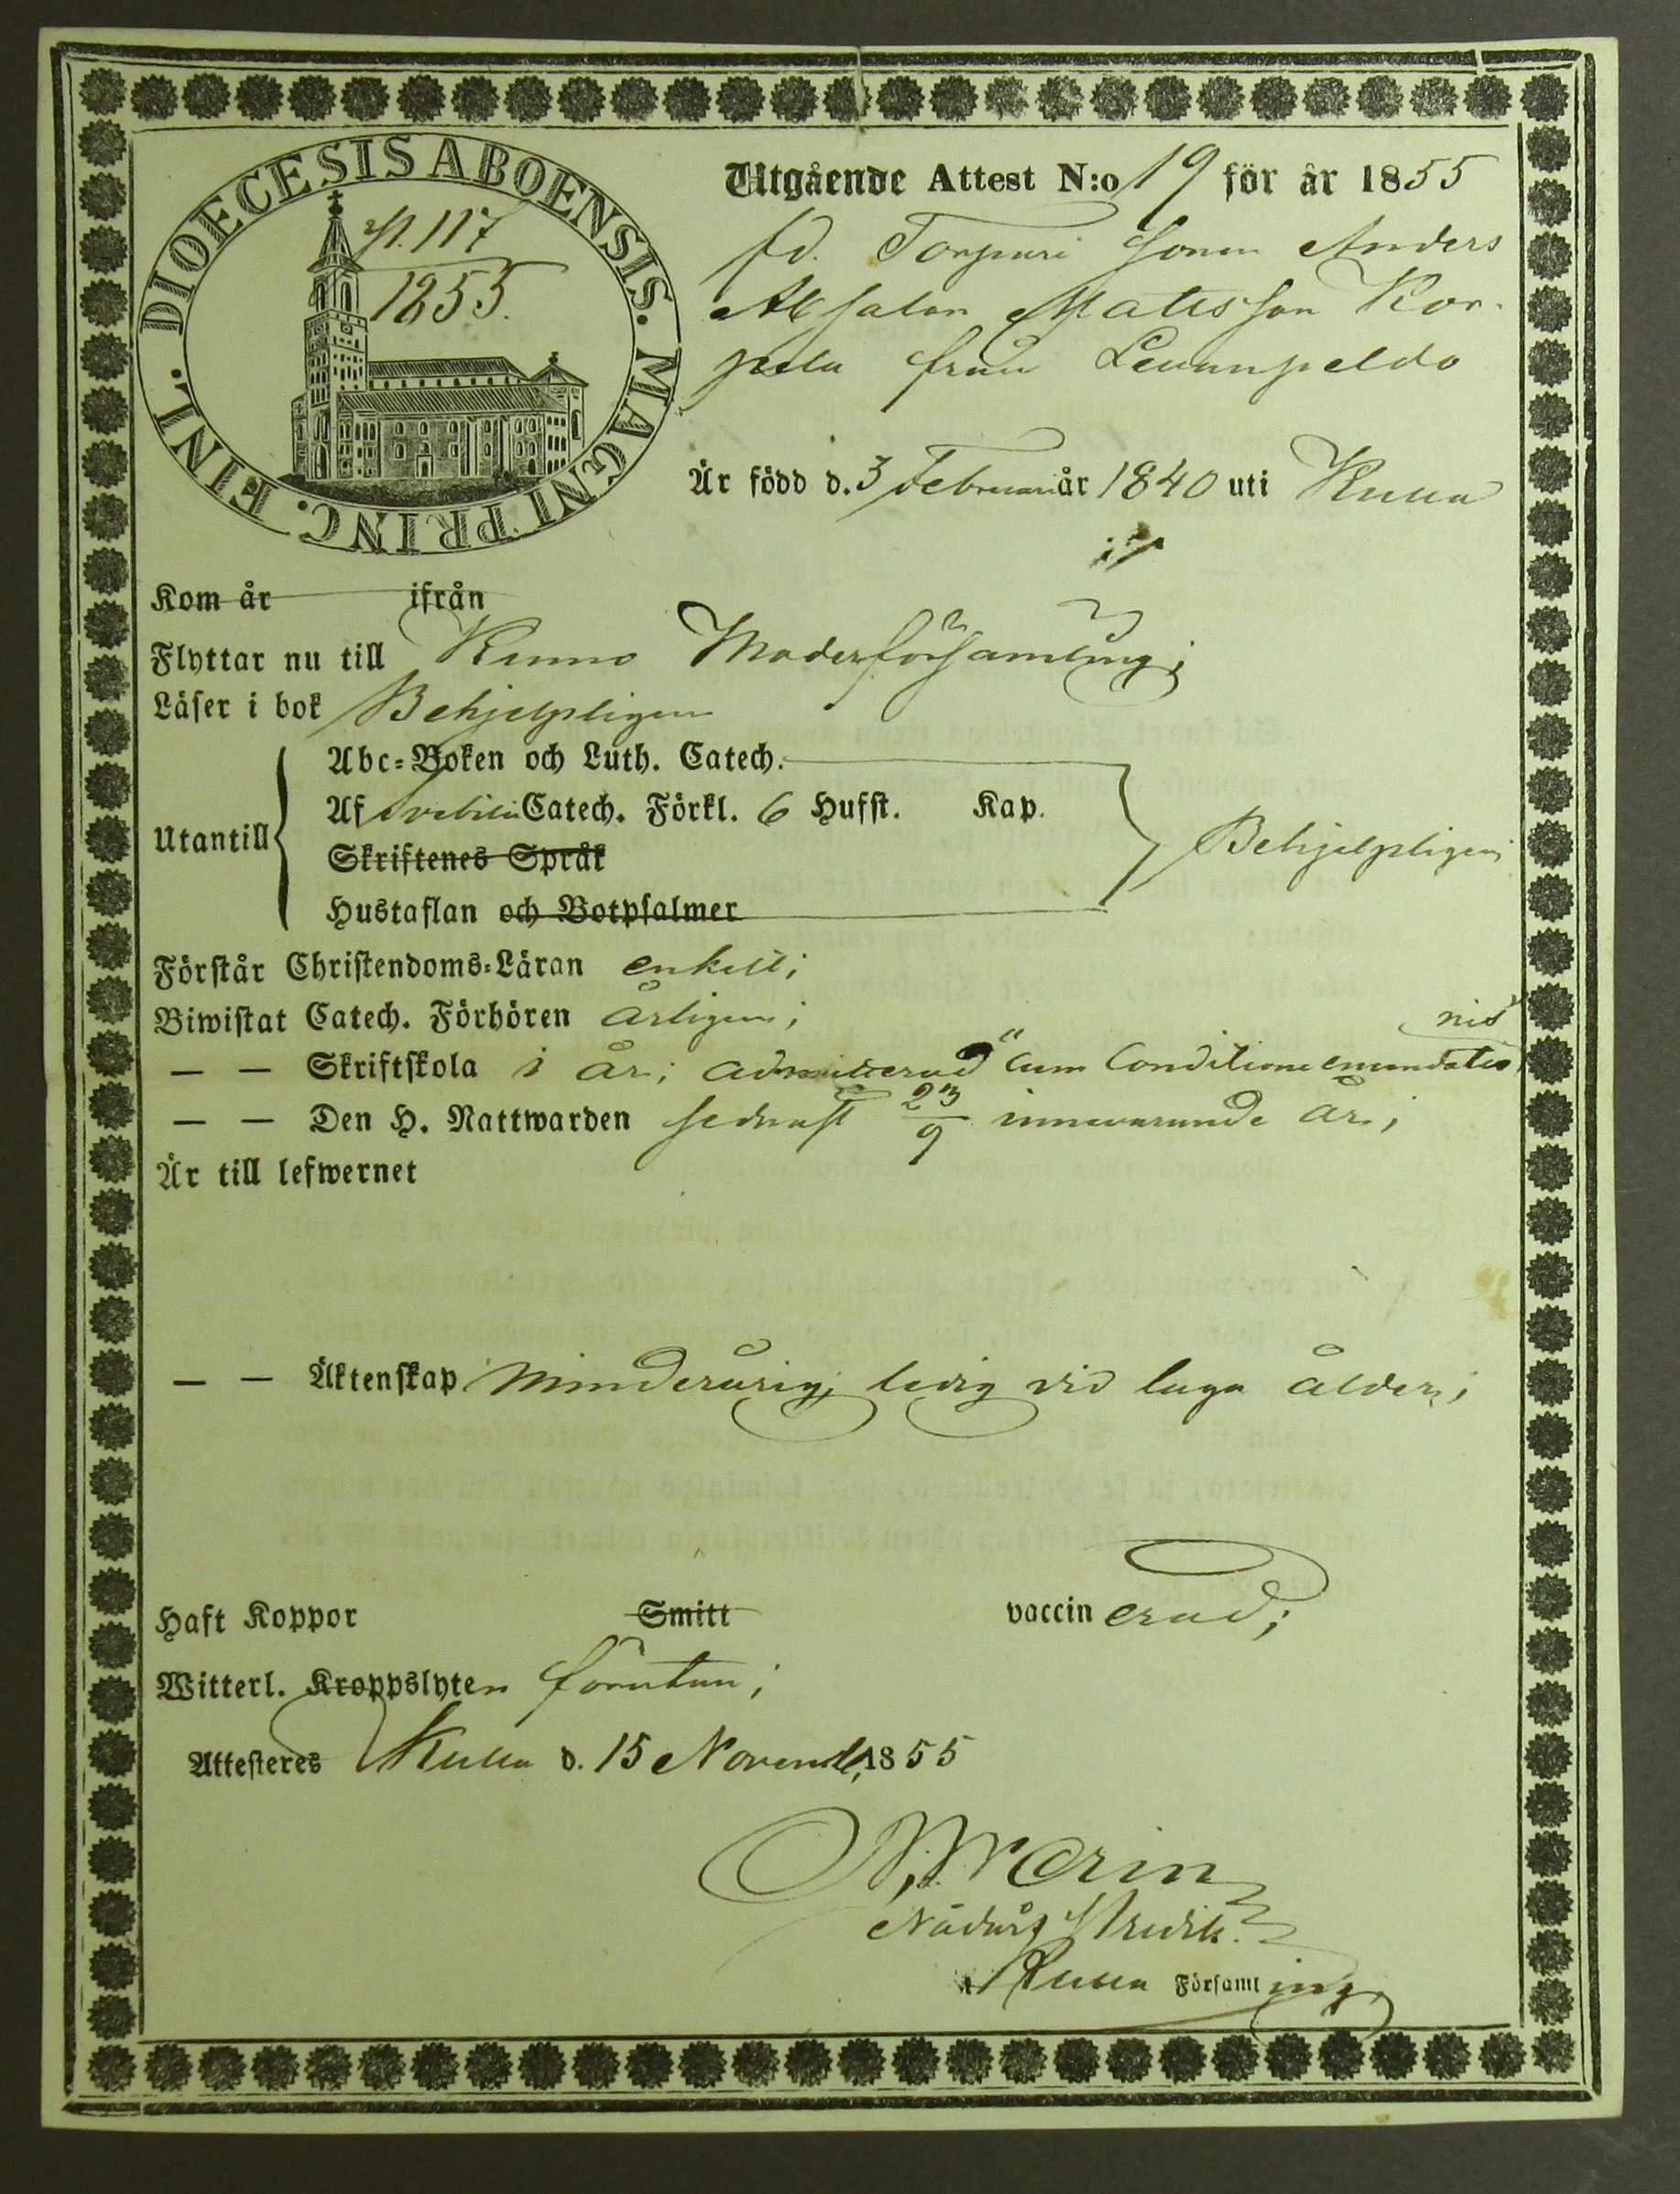 DIOECESIS ABOENSIS. MAGNI PRINC. FINL.
p. 117
1855.
Utgående Attest N:o 19 för år 1855
fd. Torpare Sonen Anders
Absalon Matisson Kor-
pela från
Är född d. 3 Februari år 1840 uti Kulla
Kom år ifrån
Flyttar nu till Kumo Moderförsamling;
Läser i bok Behjelpligen
Utantill
Abc-Boken och Luth. Catech.
Af Svebilii Catech. Förkl. 6 Hufst. Kap.
Behjelpligen;
Skriftenes Språk
Hustaflan och Botpsalmer
Förstår Christendoms-Läran enkelt;
Biwistat Catech. Förhören Årligen;
— — Skriftskola i år; admitterad "cum Conditione emendatio
nis"
— — Den H. Nattwarden sednast 23/9 innevarande år;
Är till lefwernet
— — Äktenskap Minderårig; ledig vid laga ålder;
Haft Koppor Smitt vaccinerad;
Witterl. Kroppslyten förutan;
Attesteres Kulla d. 15 Novemb. 1855
Nådårs Predik.
i Kulla Församling